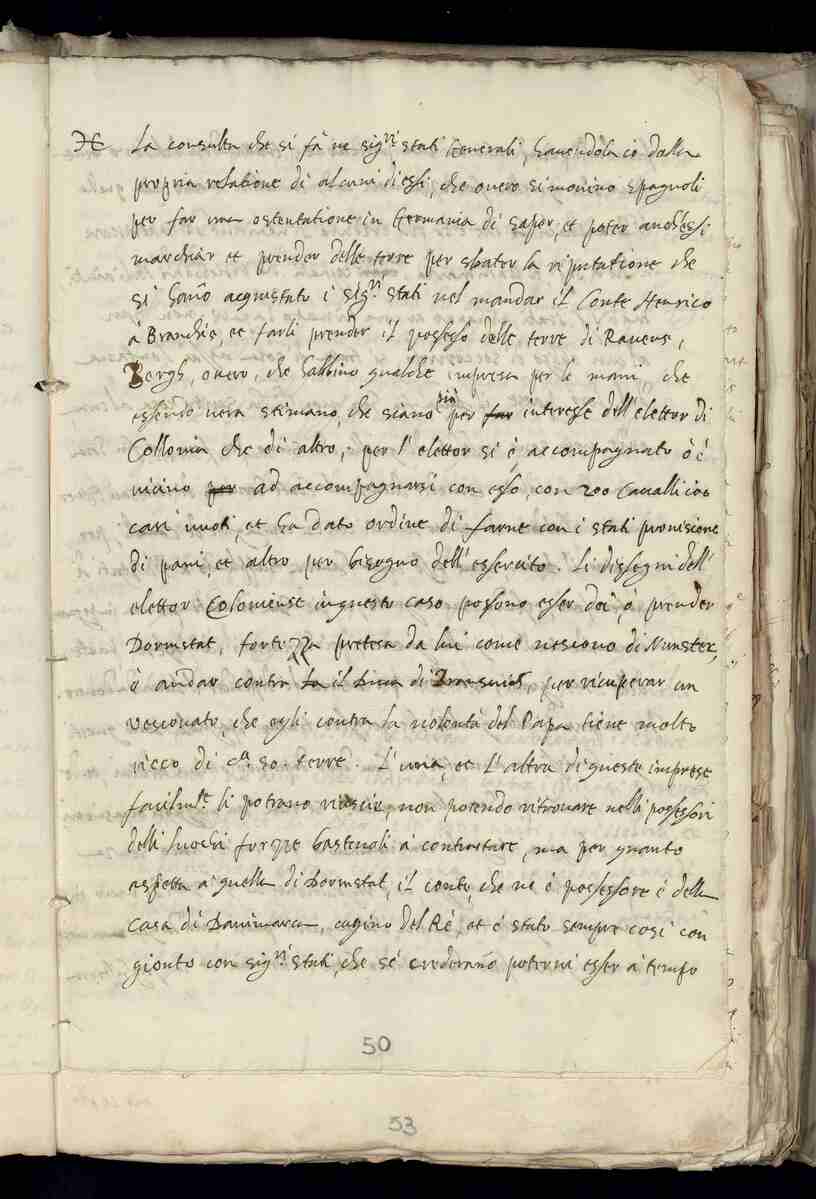 La consulta che si fà ne sig.ri stati Generali, havendola io dalla
propria relatione di alcuni di essi, che overo si movino spagnoli
per far una ostentatione in Germania di saper, et poter anch'essi
marchiar et prender delle terre per sbater la riputatione che
si hano acquistato i sig.ri stati nel mandar il Conte Henrico
à et farli prender il possesso delle terre di Ravens,
Bergh, overo, che habbino qualche impresa per le mani, che
essendo vera stimano, che siano più per far interesse dell'elettor di
Collonia che di altro, per l'elettor si è accompagnato ò è
vicino per ad accompagnarsi con esso, con 200 Cavalli 100
cari vuoti, et ha dato ordine di farne con i stati provisione
di pani, et altro per bisogno dell'essercito. Li dissegni dell'
elettor Coloniense in questo caso possono esser doi, ò prender
Dormstat, fortezza pretesa da lui come vescovo di Munster,
ò andar contra il Duca di per ricuperar un
vescovato, che egli contra la volontà del Papa tiene molto
ricco di c.a 50 terre. L'una, et l'altra di queste imprese
facilm.te li potrano riuscir, non potendo ritrovare nelli possessori
delli luochi forze bastevoli à contrastare, ma per quanto
aspetta à quella di Dormstat, il conte, che ne è possessore è della
casa di Danimarca, cugino del Rè, et è stato sempre così con
gionto con sig.ri stati, che se crederano potervi esser à tempo
50
53